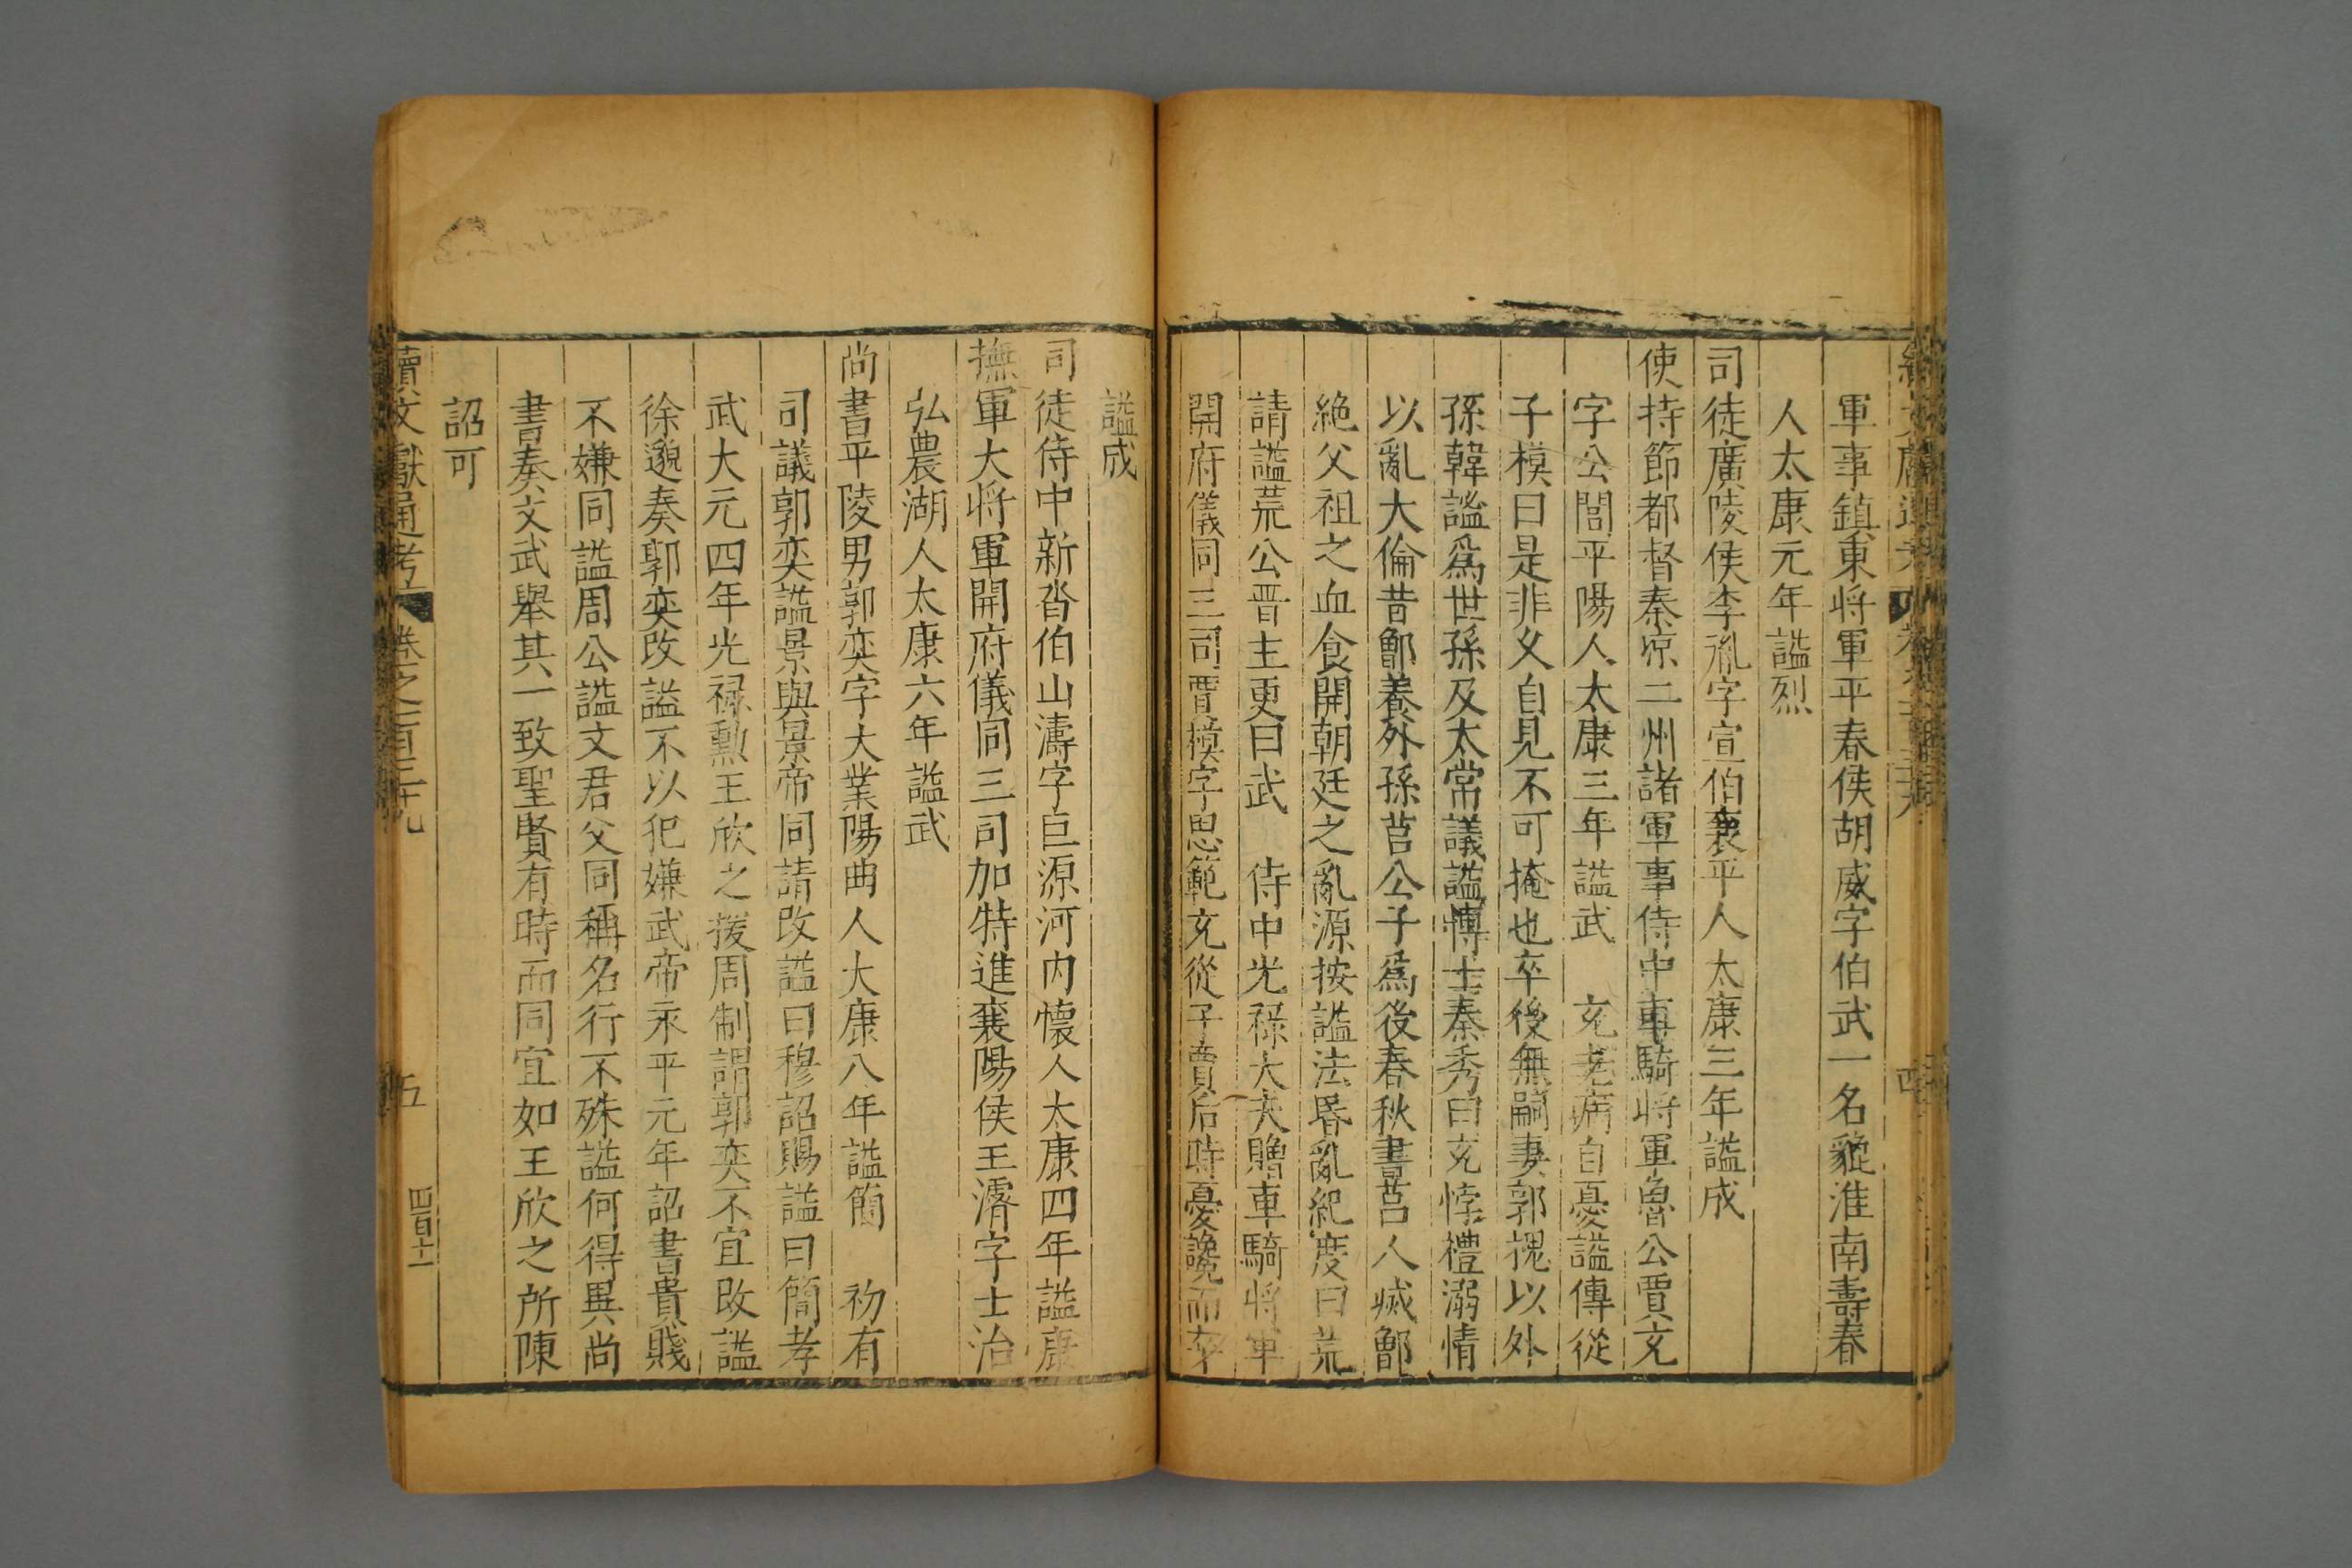 軍事鎮東将軍平春侯胡威字伯武一名貔淮南壽春
人太康元年謚烈
司徒廣陵侯李胤字宣伯襄平人太康三年謚成
使持節都督秦凉二州諸軍事侍中車騎将軍魯公賈充
字公閭平陽人太康三年謚武 充老病自憂謚傳從
子模曰是非乆自見不可掩也卒後無嗣妻郭槐以外
孫韓謐爲世孫及太常議謚博士秦秀曰充悖禮溺情
以亂大倫昔鄫養外孫莒公子爲後春秋書莒人㓕鄫
絶父祖之血食開朝廷之亂源按謚法昬亂紀度曰荒
請謚荒公晋主更曰武 侍中光禄大夫贈車騎將軍
開府儀同三司賈模字思範充從子賈后時憂讒而卒
謚成
司徒侍中新沓伯山濤字巨源河内懷人太康四年謚康
撫軍大将軍開府儀同三司加特進襄陽侯王濬字士治
弘農湖人太康六年謚武
尚書平陵男郭奕字大業陽曲人大康八年謚簡 初有
司議郭奕謚景與景帝同請改謚曰穆詔賜謚曰簡孝
武大元四年光禄勲王欣之援周制謂郭奕不宜改謚
徐邈奏郭奕改謚不以犯嫌武帝永平元年詔書貴賤
不嫌同謚周公謚文君父同稱名行不殊謚何得異尚
書奏文武舉其一致聖賢有時而同宜如王欣之所陳
詔可
續文獻通考 卷之一百三十九 五 四百十一